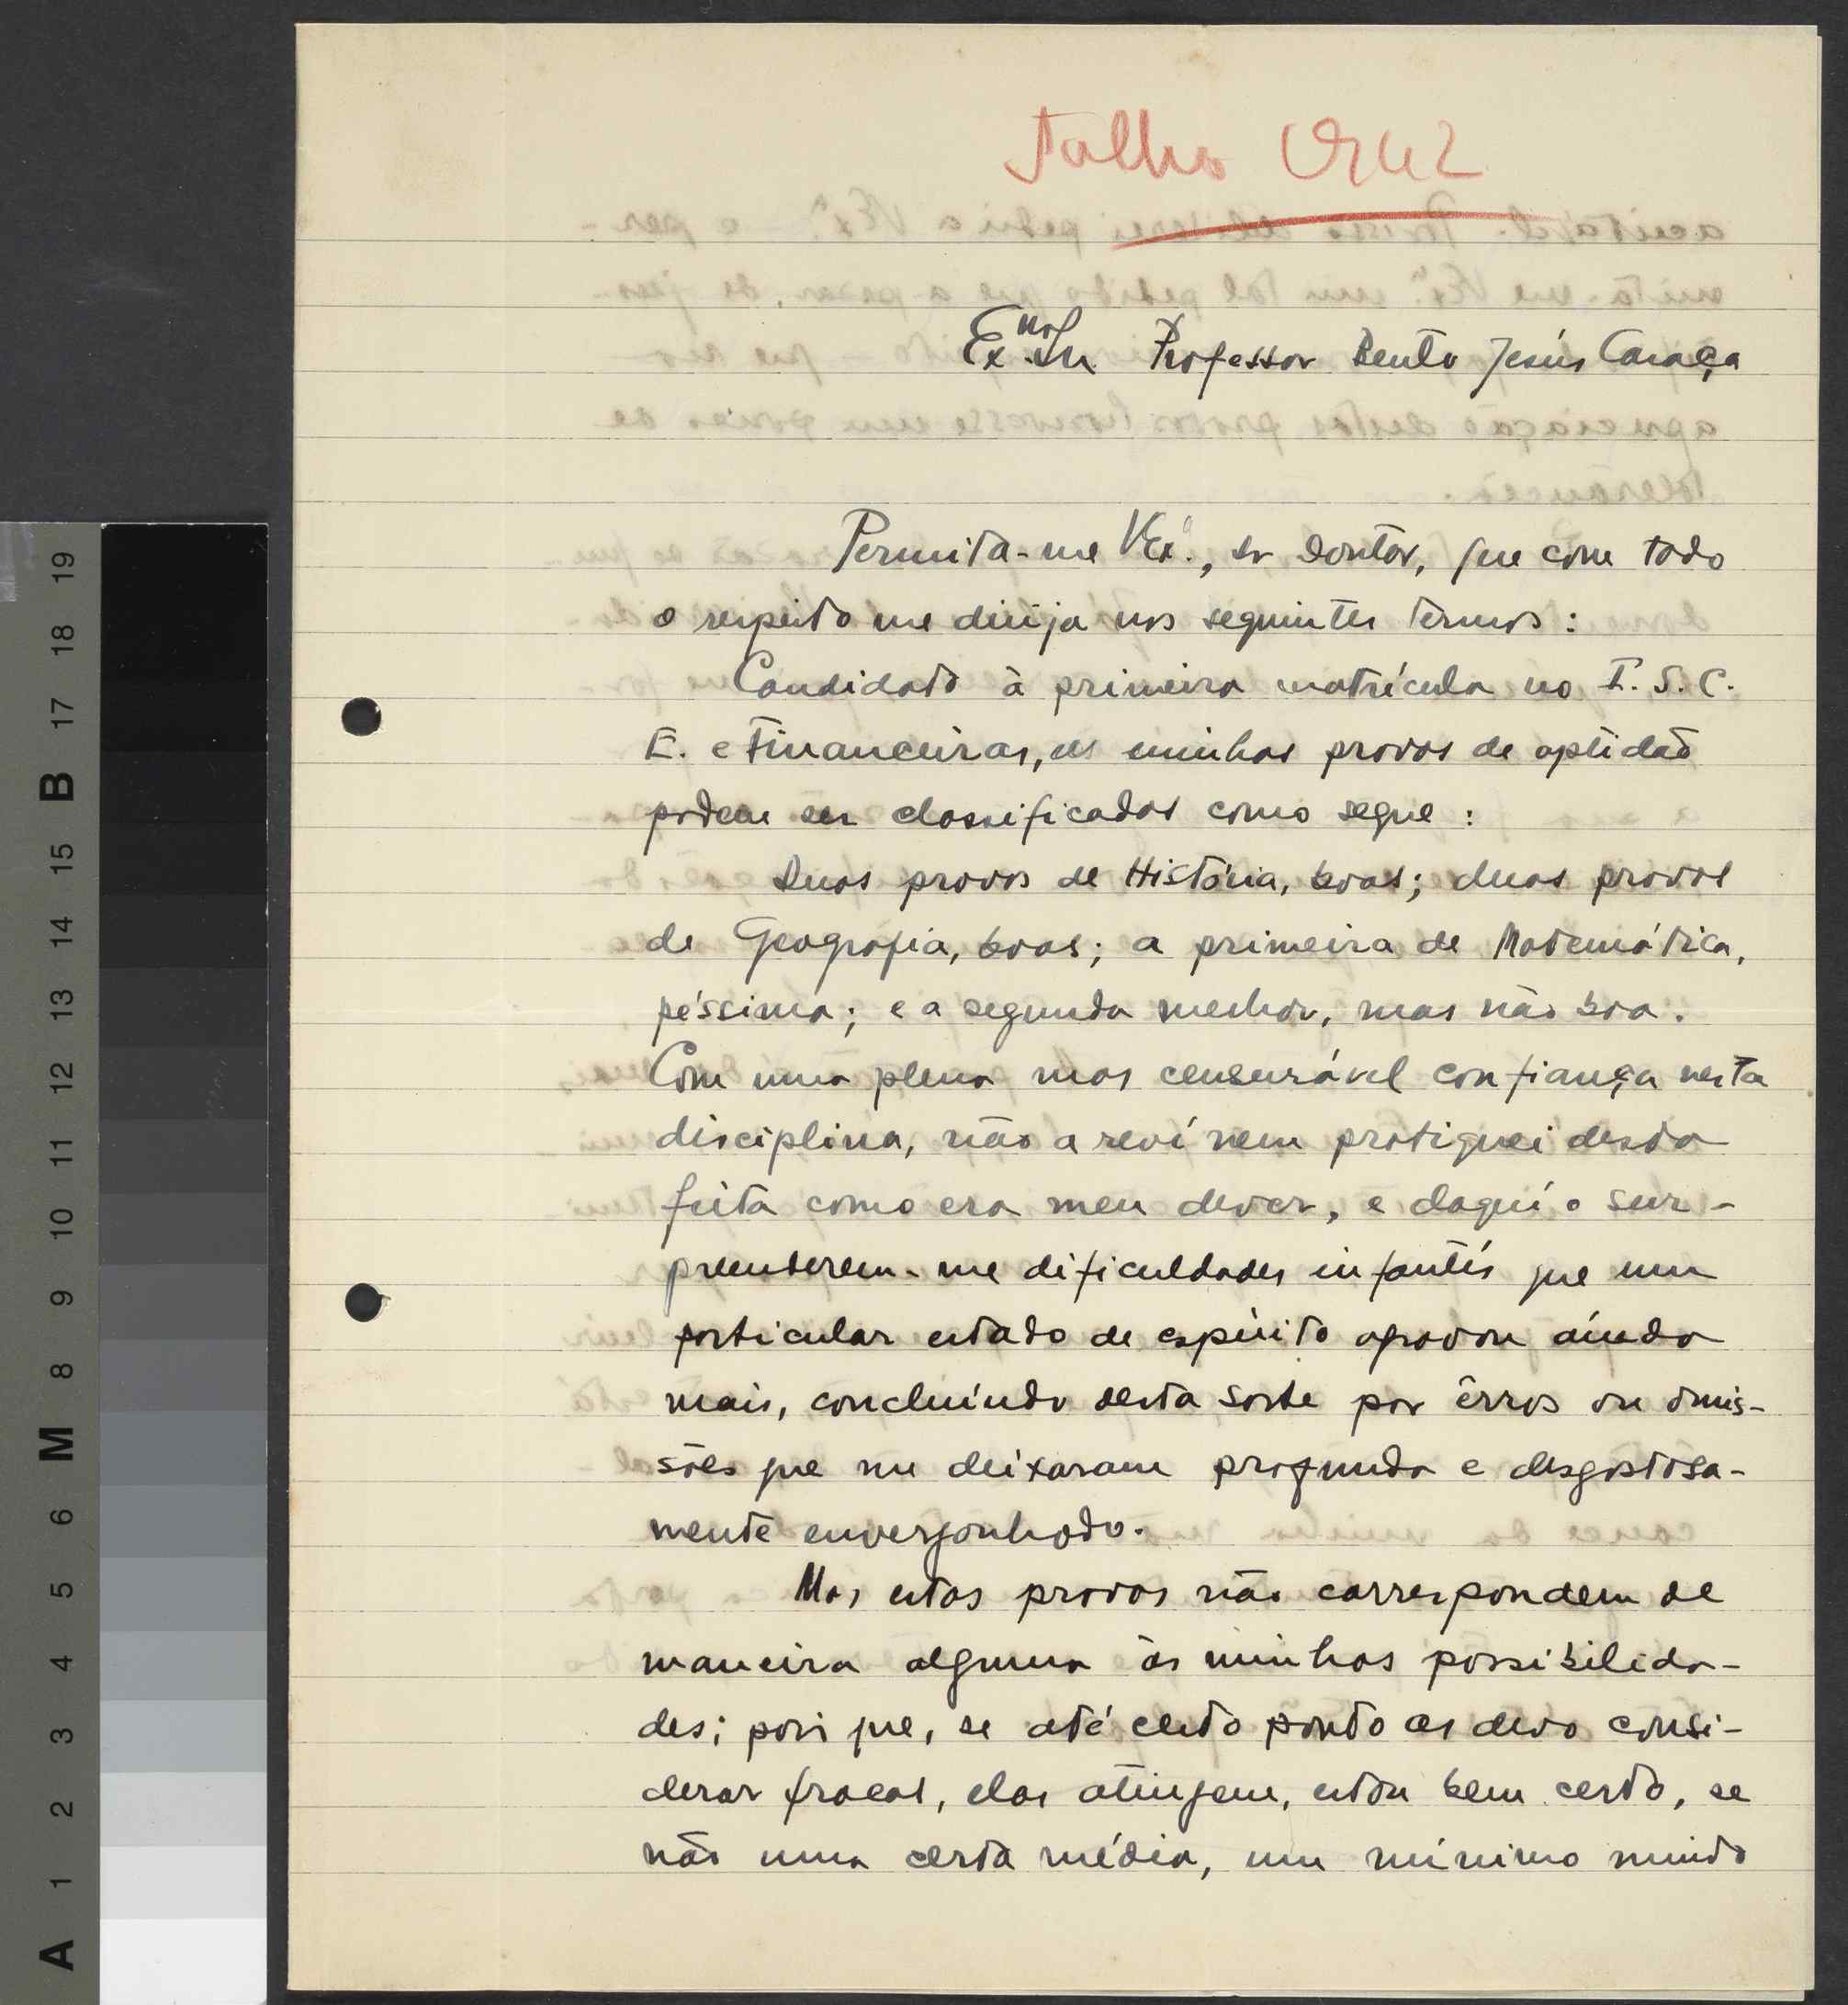 Ex.mo Sr. Professor Bento Jesús Caraça
Permita-me VEx.ª, sr Doutor, que com todo
o respeito me dirija nos seguintes termos:
Candidato à primeira matrícula no I. S. C.
E. e Financeiras, as minhas provas de aptidão
podem ser classificadas como segue:
Duas provas de História, boas; duas provas
de Geografia, boas; a primeira de Matemática,
péssima; e a segunda melhor, mas não boa.
Com uma plena mas censurável confiança nesta
disciplina, não a reví nem pratiquei desta
feita como era meu dever, e daquí o sur-
preenderem-me dificuldades infantís que um
particular estado de espírito agravou aínda
mais, concluíndo desta sorte por êrros ou omis-
sões que me deixaram profunda e desgostosa-
mente envergonhado.
Mas estas provas não correspondem de
maneira alguma às minhas possibilida-
des; pois que, se até certo ponto as devo consi-
derar fracas, elas atingem, estou bem certo, se
não uma certa média, um mínimo muito
A 1 2 3 4 5 6 M 8 9 10 11 12 13 14 15 B 17 18 19